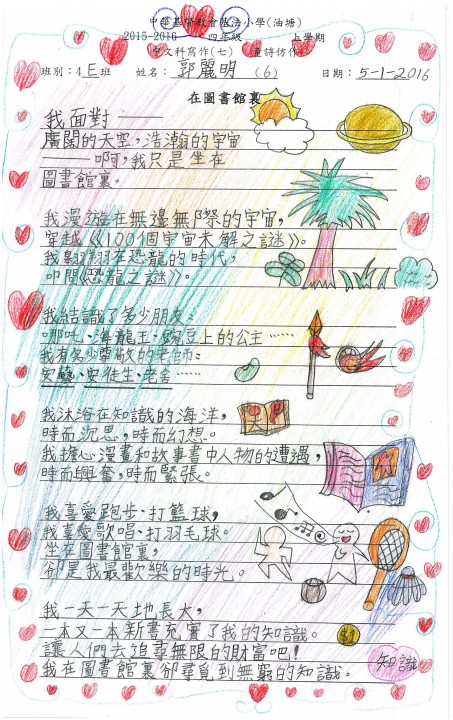 中華基督教會基法小學(油塘)
2015-2016 四年級 上學期
中文科寫作(七) 童詩仿作
班別:4E班 姓名:郭麗明(6) 日期:5-1-2016
在圖書館裏
我面對——
廣闊的天空,浩瀚的宇宙
——啊,我只是坐在
圖書館裏。
我漫遊在無邊無際的宇宙,
穿越《100個宇宙未解之謎》。
我翱翔在恐龍的時代,
叩問《恐龍之謎》。
我結識了多少朋友:
哪吒、海龍王、豌豆上的公主……
我有多少尊敬的老師:
安徒生、老舍……
我沐浴在知識的海洋,
時而沉思,時而幻想。
我擔心漫畫和故事書中人物的遭遇,
時而興奮,時而緊張。
我喜愛跑步、打籃球,
我喜愛歌唱、打羽毛球。
坐在圖書館裏,
卻是我最歡樂的時光。
我一天一天地長大,
一本又一本新書充實了我的知識。
讓人們去追尋無限的財富吧!
我在圖書館裏卻尋覓到無窮的知識。
$1
知識